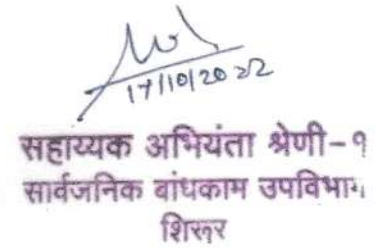 17/10/2022
सहाय्यक अभियंता श्रेणी-१
सार्वजनिक बांधकाम उपविभाग
शिरूर